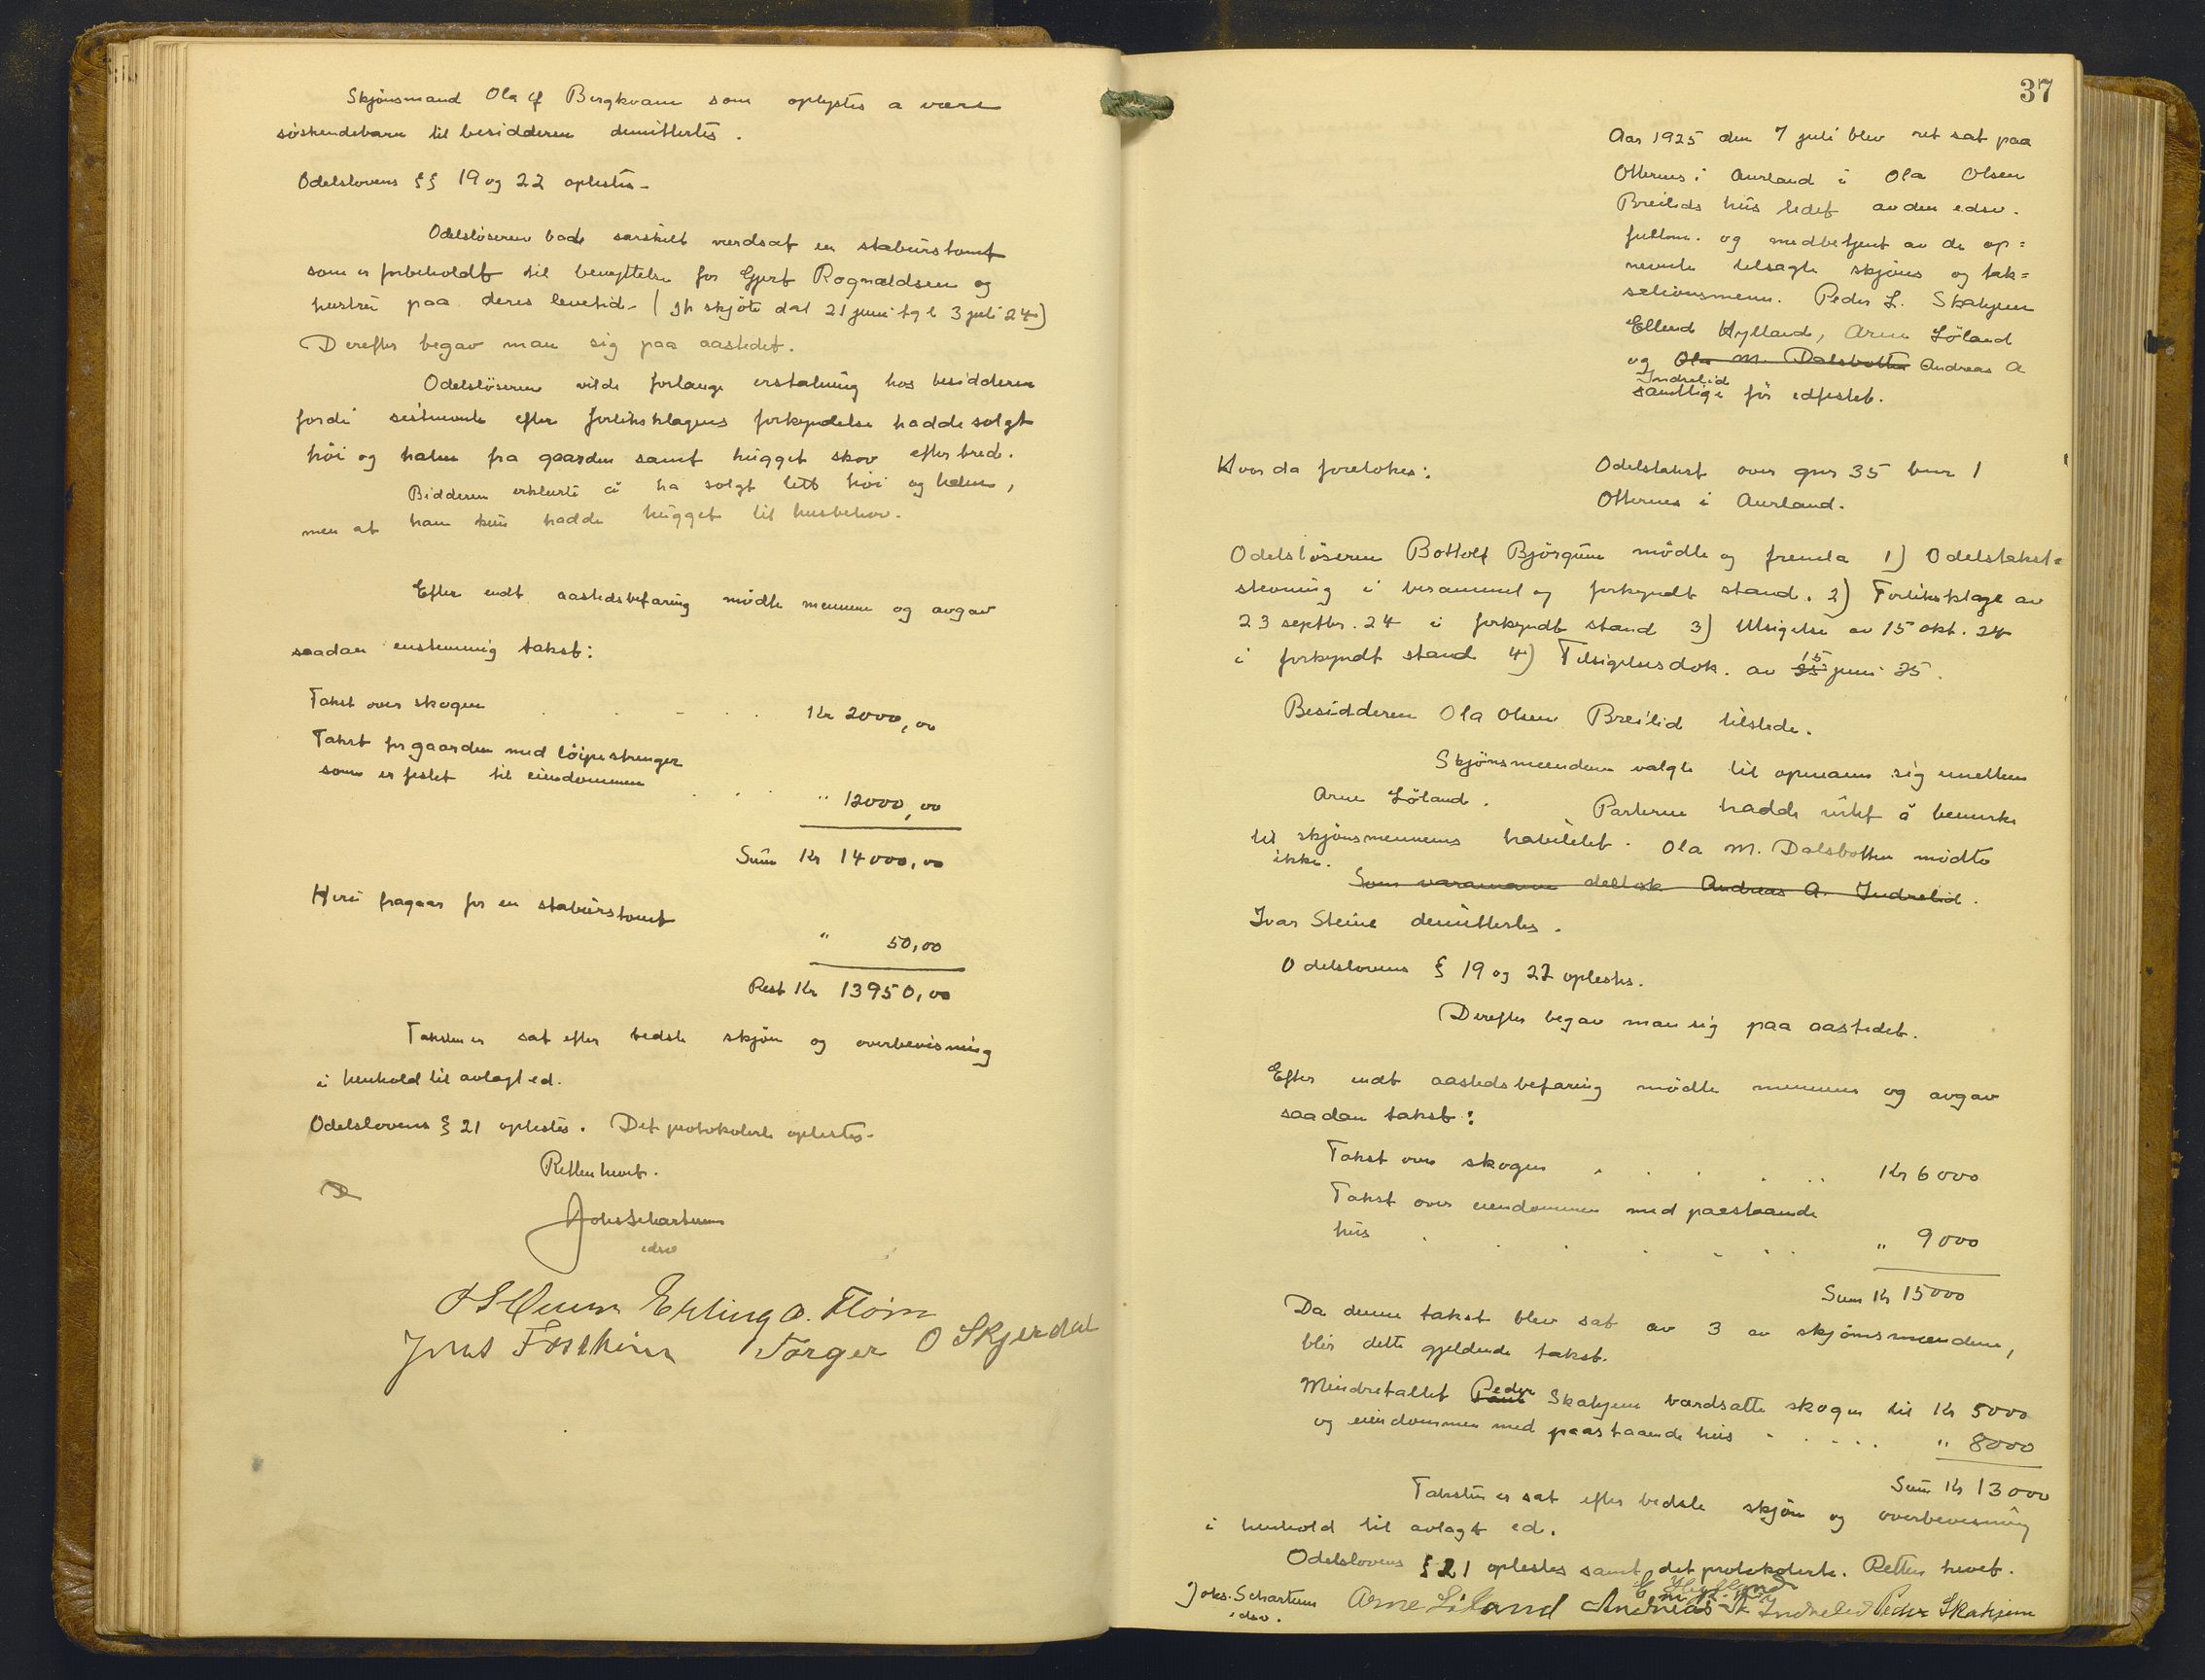 Skjönsmand Ola Bergkvam som oplystes a være
söskendebarn til besidderen demittertes.
Odelslovens §§ 19 og 22 oplestes.
Odelslöseren bad særskilt værdsat en stabürstomt
som er forbeholdt til benyttelse for Gjert Rognaldsen og
hustrü paa deres levetid. (jfr skjöte dat 21 juni tgl 3 juli 24)
Derefter begav man sig paa aastedet.
Odelslöseren vilde forlange erstatning hos besidderen
fordi sidstnevnte efter forliksklagens forkyndelse hadde solgt
höi og halm fra gaarden samt hügget skov efter bred.
Bidderen erklærte å ha solgt litt höi og halm,
men at han kün hadde hügget til husbehov.
Efter endt aastedsbefaring mödte mennene og avgav
saadan enstemmig takst:
Takst over skogen . . . Kr 2000,00
Takst for gaarden med löipestrenger
som er festet til eiendommen . . . " 12000,00
Süm Kr 14000,00
Heri fragaar for en stabürstomt
" 50,00
Rest Kr 13950,00
Taksten er sat efter bedste skjön og overbevisning
i henhold til avlagt ed.
Odelslovens § 21 oplestes. Det protokolerte oplestes.
Retten hevet.
Johs Schartum
edsv
Erling O. Flåm
Torger O Skjerdal
37
Aar 1925 den 7 juli blev ret sat paa
Otternes i Aurland i Ola Olsen
Breilids hüs ledet av den edsv.
fullm. og medbetjent av de op=
nevnte tilsagte skjöns og tak=
sationsmenn. Peder L. Skahjem
Ellend Hylland, Arne Löland
og Ola M. Dalsbotten Andreas A
Indrelid
samtlige för edfestet.
Hvor da foretokes:
Odelstakst over gnr 35 bnr 1
Otternes i Aurland.
Odelslöseren Bottolf Bjørgüm mödte og fremla 1) Odelstakst=
stevning i berammet og forkyndt stand. 2) Forliksklage av
23 septbr. 24 i forkyndt stand 3) Utsigelse av 15 okt. 24
i forkyndt stand 4) Tilsigelsesdok. av 25 15 juni 25.
Besidderen Ola Olsen Breilid tilstede.
Skjönsmændene valgte til opmann sig imellem
Arne Löland. Parterne hadde intet å bemerke
til skjönsmennenes habilitet. Ola M. Dalsbotten mödte
ikke.
Som varamann deltok Andreas A. Indrelid.
Ivar Steine demittertes.
Odelslovens § 19 og 22 oplestes.
Derefter begav man sig paa aastedet.
Efter endt aastedsbefaring mödte mennene og avgav
saadan takst:
Takst over skogen . . . Kr 6000
Takst over eiendommen med paastaaende
hüs . . . " 9000
Sum Kr 15000
Da denne takst blev sat av 3 av skjönsmændene,
blir dette gjeldende takst.
Mindretallet Peder Skahjem værdsatte skogen til Kr 5000
og eiendommen med paastaaende hüs . . . " 8000
Süm Kr 13000
Taksten er sat efter bedste skjön og overbevisning
i henhold til avlagt ed.
Odelslovens § 21 oplestes samt det protokolerte. Retten hevet.
E. Hylland
Johs. Schartum Arne Löland Andreas A Indrelid Peder Skahjem
edsv.